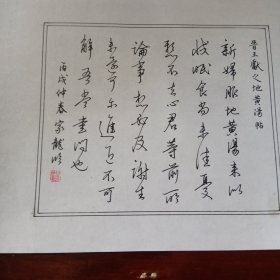 晋王献之地黄汤帖
新妇服地黄汤来似
减眠食尚未佳忧
悬不去心君等前所
论事想必及谢生
未还可尔进退不可
解吾当书问也
丙戌仲春家龙